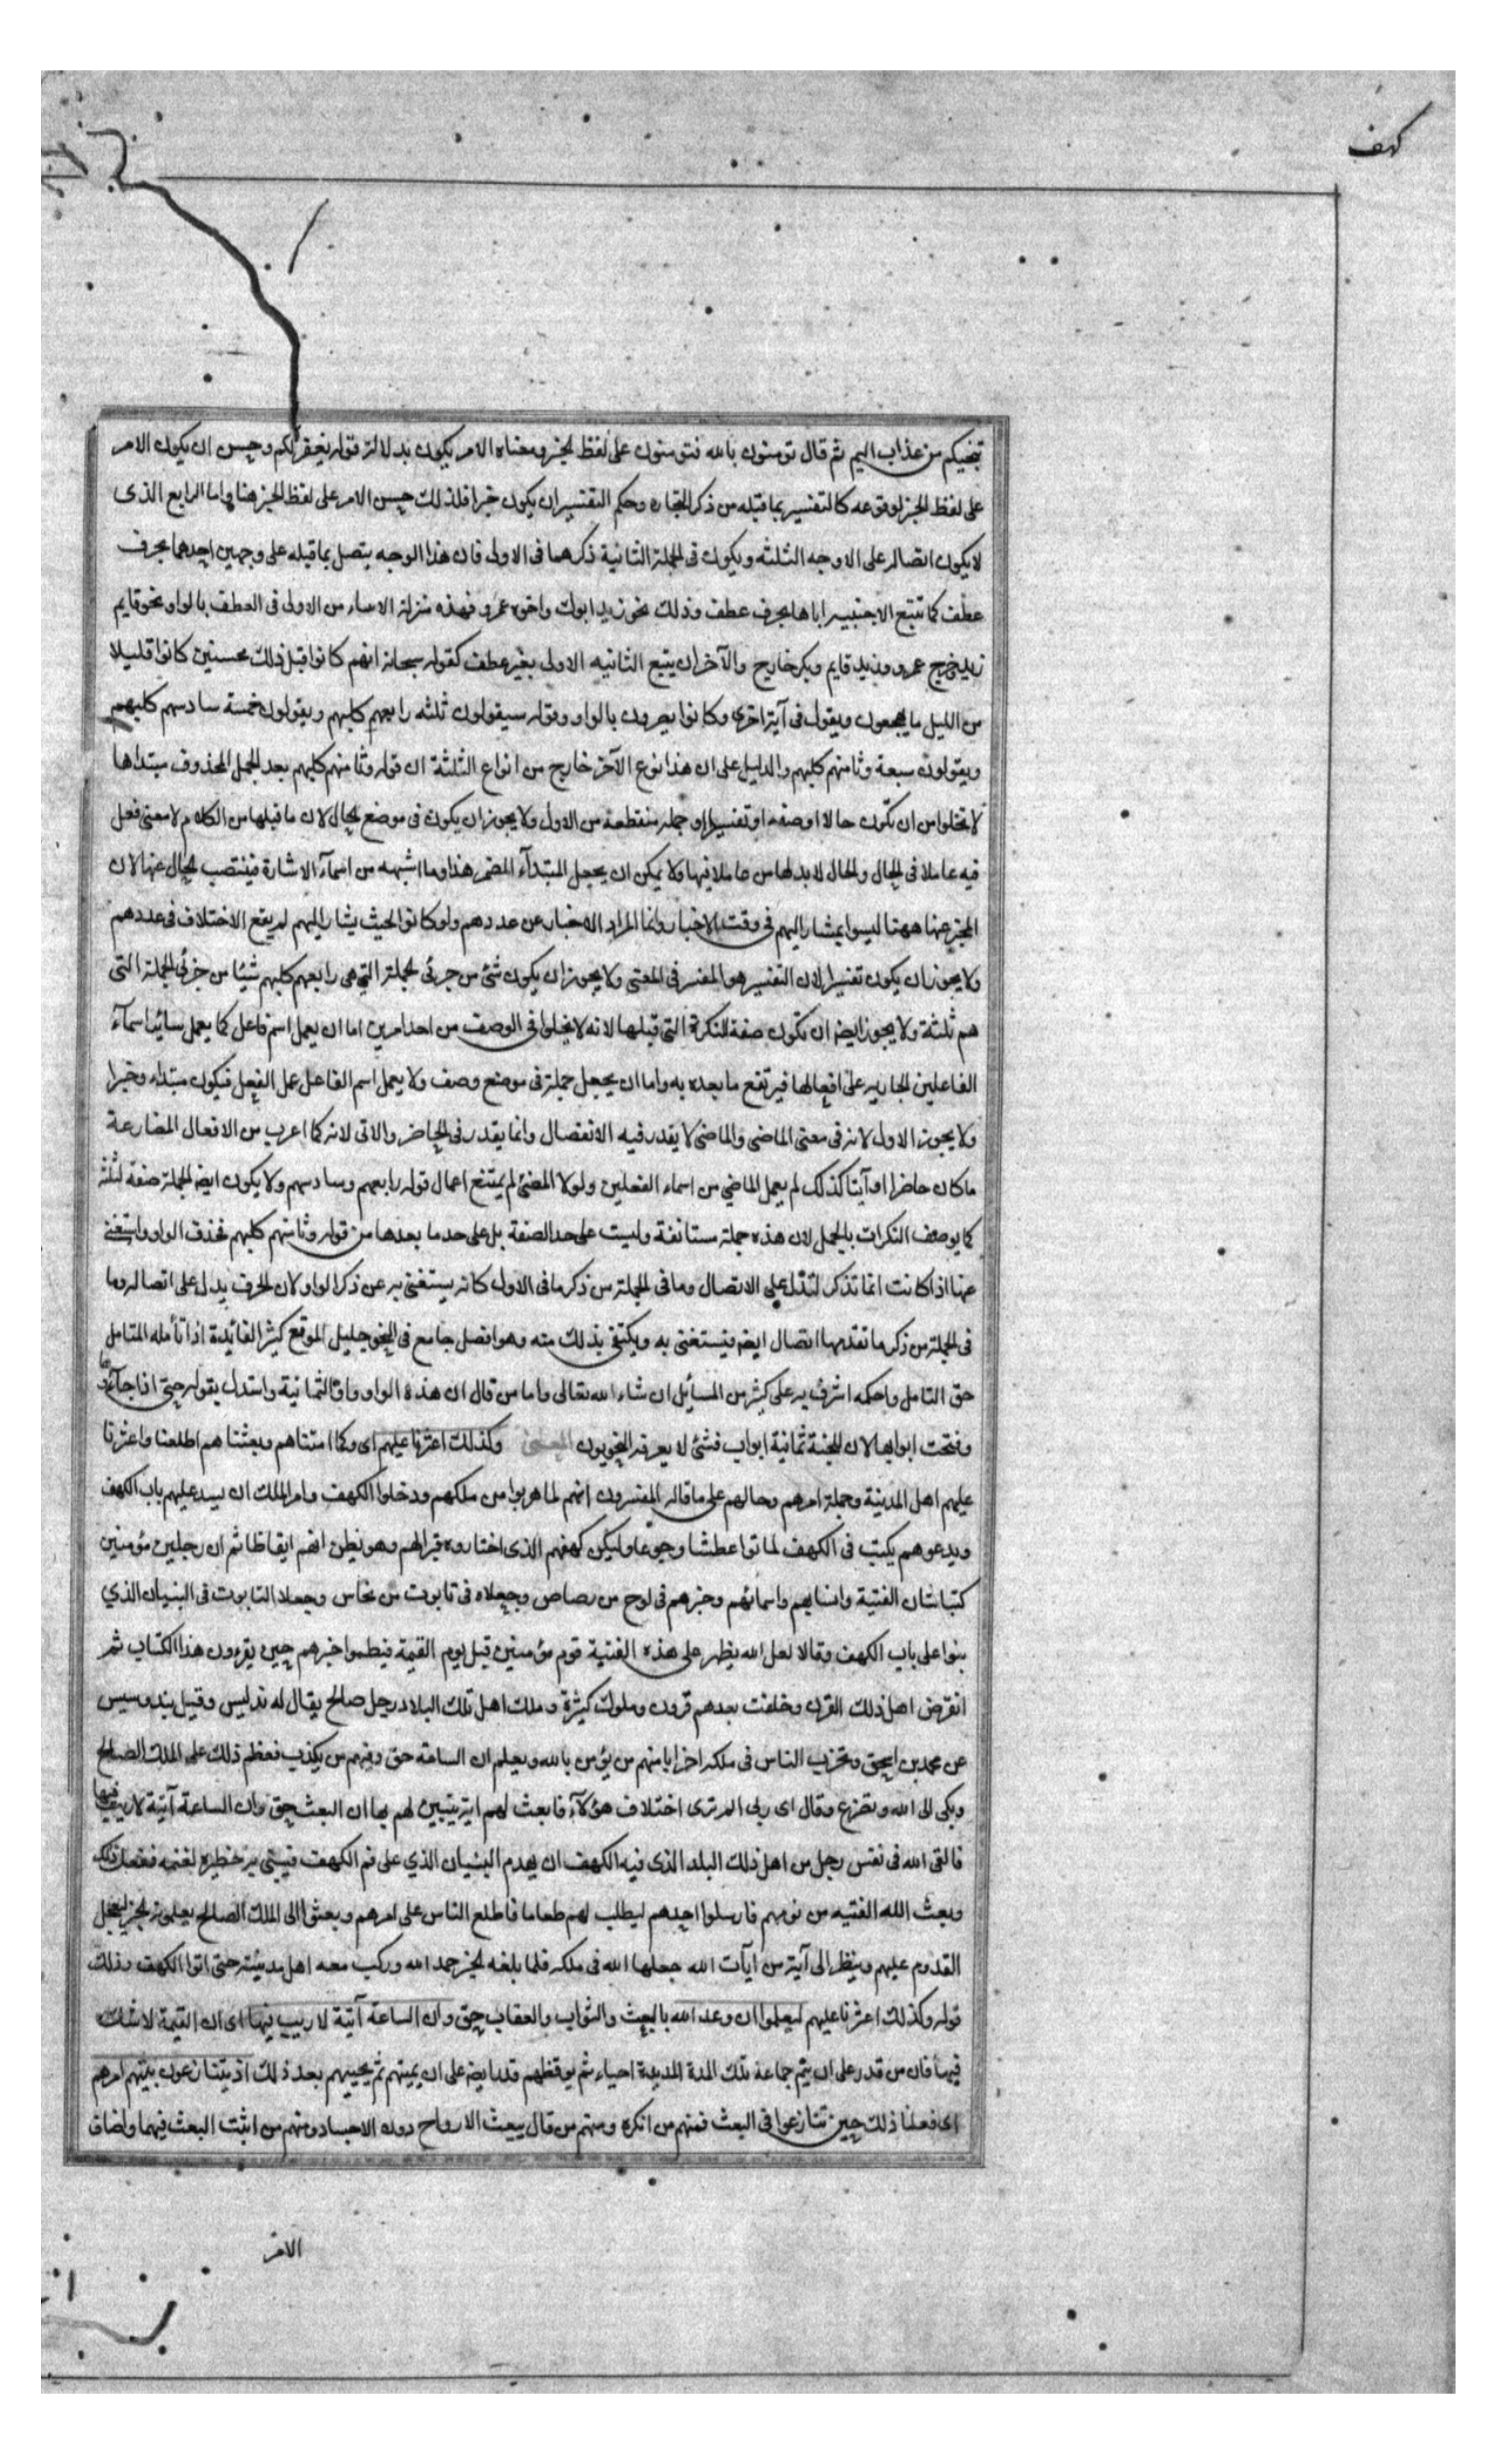 كهف
تنجيكم من عذاب اليم ثم قال تومنون بالله فتومنون على لفظ الخبر ومعناه الامر يكون بدلالة قوله يغفر لكم وحسن ان يكون الامر
على لفظ الخبر لوقوعه كالتفسير بما قبله من ذكر التجاره وحكم التفسير ان يكون خبرا فلذلك حسن الامر على لفظ الخبر هنا واما الرابع الذى
لا يكون اتصاله على الاوجه الثلثه ويكون فى الجملة الثانية ذكر مما فى الاولى فان هذا الوجه يتصل بما قبله على وجهين احدهما بحرف
عطف كما تتبع الاجنبيه اياها بحرف عطف وذلك نحو زيد ابوك واخوه عمرو فهذه منزلة الاسماء من الاولى فى العطف بالواو نحو قايم
زيد وخرج عمرو وزيد قايم وبكر خارج والآخر ان يتبع الثانيه الاولى بغير عطف كقوله سبحانه انهم كانوا قبل ذلك محسنين كانوا قليلا
من الليل ما يهجعون ويقول فى آية اخرى وكانوا يصرون بالواو وقوله سيقولون ثلثه رابعهم كلبهم ويقولون خمسة سادسهم كلبهم
ويقولون سبعة وثامنهم كلبهم والدليل على ان هذا نوع الآخر خارج من انواع الثلثة ان قوله وثامنهم كلبهم بعد الجمل المحذوف مبتداها
لا تخلوا من ان تكون حالا او صفه او تفسيرا او جمله منقطعة من الاول ولا يجوز ان يكون فى موضع الحال لان ما قبلها من الكلام لا معنى فعل
فيه عاملا فى الحال والحال لا بد لها من عاملا فيها ولا يمكن ان يجعل المبتدآء المضمر هذا وما اشبهه من اسمآء الاشارة فينتصب الحال عنها لان
المخبر عنها ههنا ليسوا بمشار اليهم فى وقت الاخبار وانما المراد الاخبار عن عددهم ولو كانوا بحيث يشار اليهم لم يقع الاختلاف فى عددهم
ولا يجوز ان يكون تفسيرا لان التفسير هو المفسر فى المعنى ولا يجوز ان يكون شئ من جزئى الجملة التي هى رابعهم كلبهم شيئا من جزئى الجملة التى
هم ثلثة ولا يجوز ايضا ان تكون صفة للنكرة التى قبلها لانه لا يخلوا فى الوصف من احد امرين اما ان يعمل اسم فاعل كما يعمل سائر اسمآء
الفاعلين الجاريه على افعالها فيرتفع ما بعده به واما ان يجعل جملة فى موضع وصف ولا يعمل اسم الفاعل عمل الفعل فيكون مبتداء وخبرا
ولا يجوز الاول لانه فى معنى الماضى والماضى لا يقدر فيه الانفصال وانما يقدر فى الحاضر والاتى لانه كما اعرب من الافعال المضارعة
ما كان حاضرا او آيتا كذلك لم يعمل الماضي من اسماء الفعلين ولولا المضئ لم يمتنع اعمال قوله رابعهم وسادسهم ولا يكون ايضا الجملة صفة لثلثة
كما يوصف النكرات بالجمل لان هذه جملة مستانفة وليست على حد الصفة بل على حد ما بعدها من قوله وثامنهم كلبهم فحذف الواو واستغنى
عنها اذا كانت انما تذكر لتدل على الاتصال وما فى الجملة من ذكر ما فى الاول كانه يستغنى به عن ذكر الواو لان الحرف يدل على اتصاله وما
فى الجملة من ذكر ما تقدمها اتصال ايضا فيستغنى به ويكتفى بذلك منه وهو افصل جامع فى النحو جليل الموقع كثير الفائدة اذا تأمله المتامل
حق التامل واحكمه اشرف به على كثير من المسائل ان شاء الله تعالى واما من قال ان هذه الواو واو الثمانية واستدل بقوله حتى اذا جآؤها
وفتحت ابوابها لان للجنة ثمانية ابواب فشئ لا يعرفه النحويون المعنى وكذلك اعثرنا عليهم اى وكما امتناهم وبعثناهم اطلعنا واعثرنا
عليهم اهل المدينة وجملة امرهم وحالهم على ما قاله المفسرون انهم لما هربوا من ملكهم ودخلوا الكهف وامر الملك ان يسد عليهم باب الكهف
ويدعوهم يكتب فى الكهف لماتوا عطشا وجوعا وليكن كهفهم الذى اختاروه قبرا لهم وهو يظن انهم ايقاظا ثم ان رجلين مؤمنين
كتبا شان الفتية وانسابهم واسمائهم وخبرهم فى لوح من رصاص وجعلاه فى تابوت من نحاس وجعلا التابوت فى البنيان الذي
بنوا على باب الكهف وقالا لعل الله يظهر على هذه الفتية قوم مؤمنين قبل يوم القيمة فيعلموا خبرهم حين يقرءون هذا الكتاب ثم
انقرض اهل ذلك القرن وخلفت بعدهم قرون وملوك كثيرة وملك اهل تلك البلاد رجل صالح يقال له ندليس وقيل بندوسيس
عن محمد بن اسحق وتحزب الناس فى ملكه احزابا منهم من يؤمن بالله ويعلم ان الساعة حق ومنهم من يكذب فعظم ذلك على الملك الصالح
وبكى الى الله وتضرع وقال اى ربى الم ترى اختلاف هؤلآء فابعث لهم اية يتبين لهم بها ان البعث حق وان الساعة آتية لا ريب فيها
فالقى الله فى نفس رجل من اهل ذلك البلد الذى فيه الكهف ان يهدم البنيان الذي على فم الكهف فيبنى به حظيرة لغنمه ففعل ذلك
وبعث الله الفتيه من نومهم فارسلوا احدهم ليطلب لهم طعاما فاطلع الناس على امرهم وبعثوا الى الملك الصالح يعلمونه الخبر ليعجل
القدوم عليهم وينظر الى آية من آيات الله جعلها الله فى ملكه فلما بلغه الخبر حمد الله وركب معه اهل مدينته حتى اتوا الكهف وذلك
قوله وكذلك اعثرنا عليهم ليعلموا ان وعد الله بالبعث والثواب والعقاب حق وان الساعة آتية لا ريب فيها اى ان القيمة لا شك
فيها فان من قدر على ان ينيم جماعة تلك المدة المديدة احياء ثم يوقظهم قدر ايضا على ان يميتهم ثم يحييهم بعد ذلك اذ يتنازعون بينهم امرهم
اى فعلنا ذلك حين تنازعوا فى البعث فمنهم من انكره ومنهم من قال يبعث الارواح دون الاجساد ومنهم من اثبت البعث فيهما واضاف
الامر